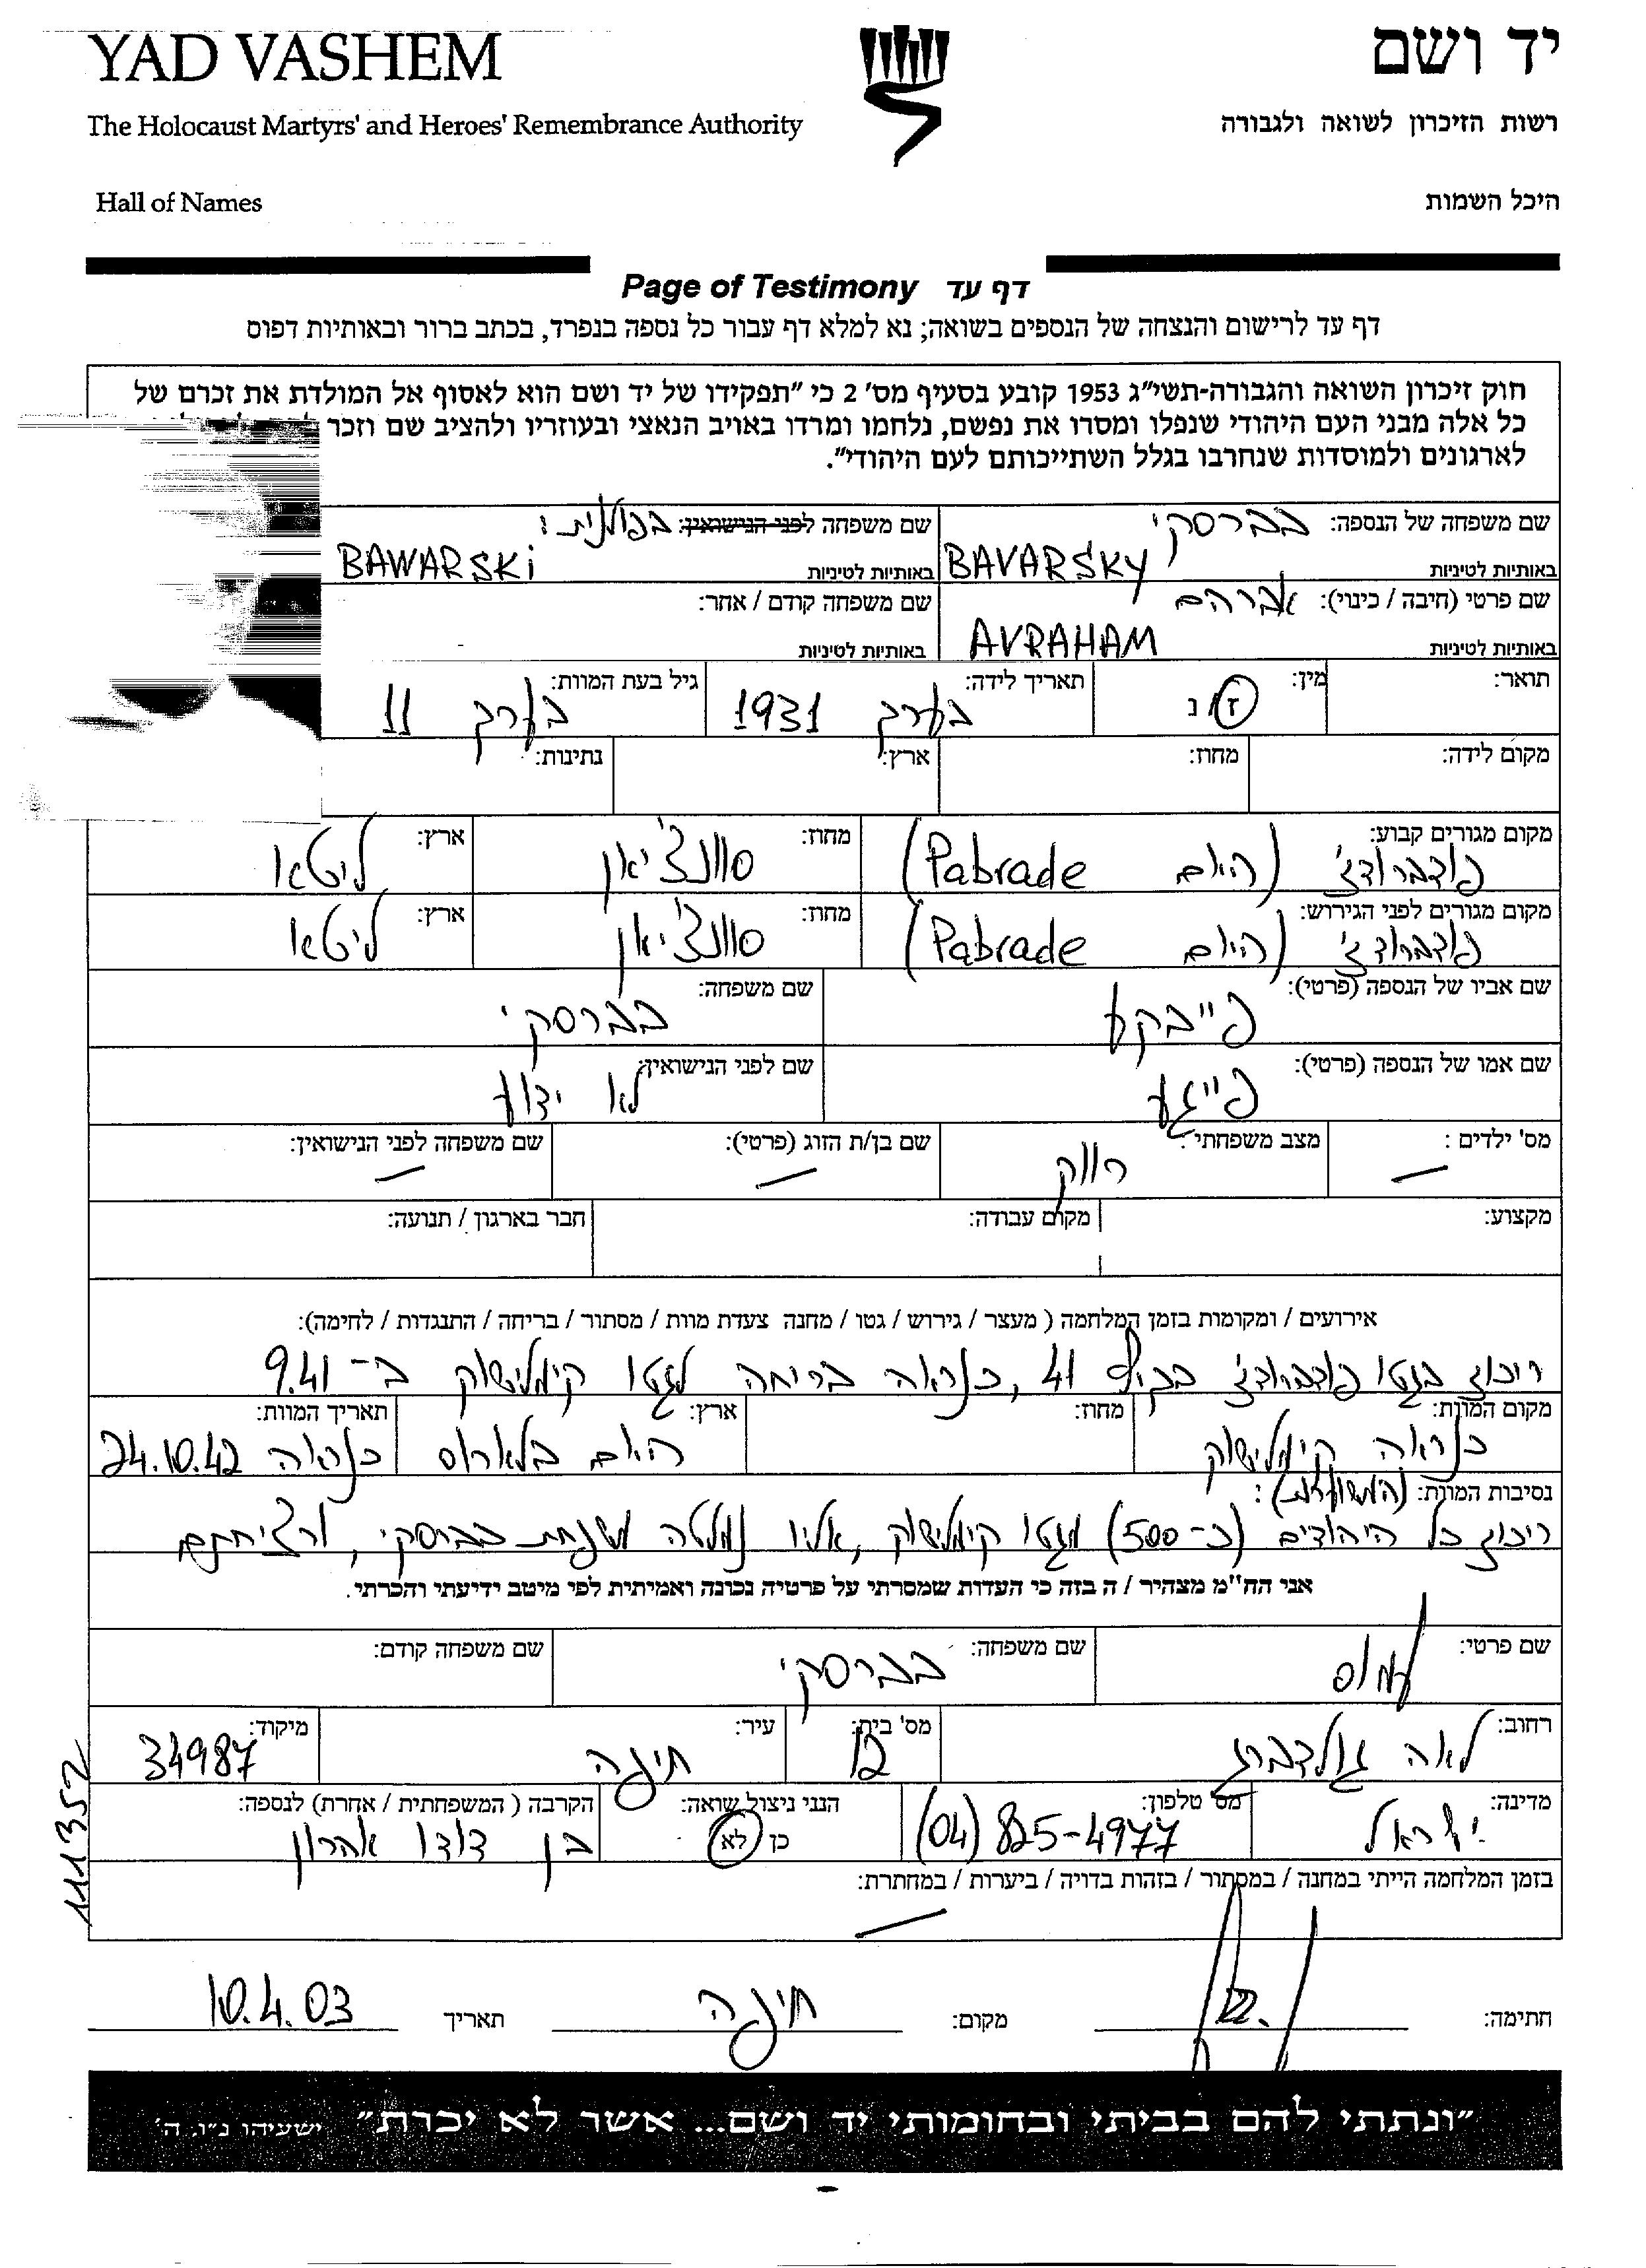 YAD VASHEM
יד ושם
The Holocaust Martyrs' and Heroes' Remembrance Authority
רשות הזיכרון לשואה ולגבורה
Hall of Names
היכל השמות
Page of Testimony דף עד
דף עד לרישום והנצחה של הנספים בשואה; נא למלא דף עבור כל נספה בנפרד, בכתב ברור ובאותיות דפוס
חוק זיכרון השואה והגבורה-תשי"ג 1953 קובע בסעיף מס' 2 כי "תפקידו של יד ושם הוא לאסוף אל המולדת את זכרם של
כל אלה מבני העם היהודי שנפלו ומסרו את נפשם, נלחמו ומרדו באויב הנאצי ובעוזריו ולהציב שם וזכר
לארגונים ולמוסדות שנחרבו בגלל השתייכותם לעם היהודי".
שם משפחה של הנספה: בברסקי שם משפחה לפני הנישואין: בפולנית:
באותיות לטיניות BAVARSKY באותיות לטיניות BAWARSKi
שם פרטי (חיבה / כינוי): אברהם שם משפחה קודם / אחר:
באותיות לטיניות AVRAHAM באותיות לטיניות
תואר: מין: ז/נ תאריך לידה: בערך 1931 גיל בעת המוות: בערך 11
מקום לידה: מחוז: ארץ: נתינות:
מקום מגורים קבוע: מחוז: ארץ:
פודברודצ' (היום Pabrade) סוונצ'יאן ליטא
מקום מגורים לפני הגירוש: מחוז: ארץ:
פודברודצ' (היום Pabrade) סוונצ'יאן ליטא
שם אביו של הנספה (פרטי): פייבקע שם משפחה: בברסקי
שם אמו של הנספה (פרטי): פייגע שם לפני הנישואין: לא ידוע
מס' ילדים: – מצב משפחתי: רווק שם בן/ת הזוג (פרטי): – שם משפחה לפני הנישואין: –
מקצוע: מקום עבודה: חבר בארגון / תנועה:
אירועים / ומקומות בזמן המלחמה ( מעצר / גירוש / גטו / מחנה צעדת מוות / מסתור / בריחה / התנגדות / לחימה):
ריכוז בגטו פודברודצ' בקיץ 41, כנראה בריחה לגטו קימלישוק ב-9.41
מקום המוות: מחוז: ארץ: תאריך המוות:
כנראה קימלישוק היום בלארוס כנראה 24.10.42
נסיבות המוות: (המשוערות):
ריכוז כל היהודים (כ-500) מגטו קימלישוק, אליו נמלטה משפחת בברסקי, ורציחתם
אני הח"מ מצהיר / ה בזה כי העדות שמסרתי על פרטיה נכונה ואמיתית לפי מיטב ידיעתי והכרתי.
שם פרטי: עמוס שם משפחה: בברסקי שם משפחה קודם:
רחוב: לאה גולדברג מס' בית: 12 עיר: חיפה מיקוד: 34987
מדינה: ישראל מס' טלפון: (04) 825-4977 הנני ניצול שואה: כן / לא הקרבה ( המשפחתית / אחרת) לנספה: בן דודו אהרון
בזמן המלחמה הייתי במחנה / במסתור / בזהות בדויה / ביערות / במחתרת: –
111352
חתימה: מקום: חיפה תאריך 10.4.03
"ונתתי להם בביתי ובחומותי יד ושם... אשר לא יכרת" ישעיהו נ"ו, ה'